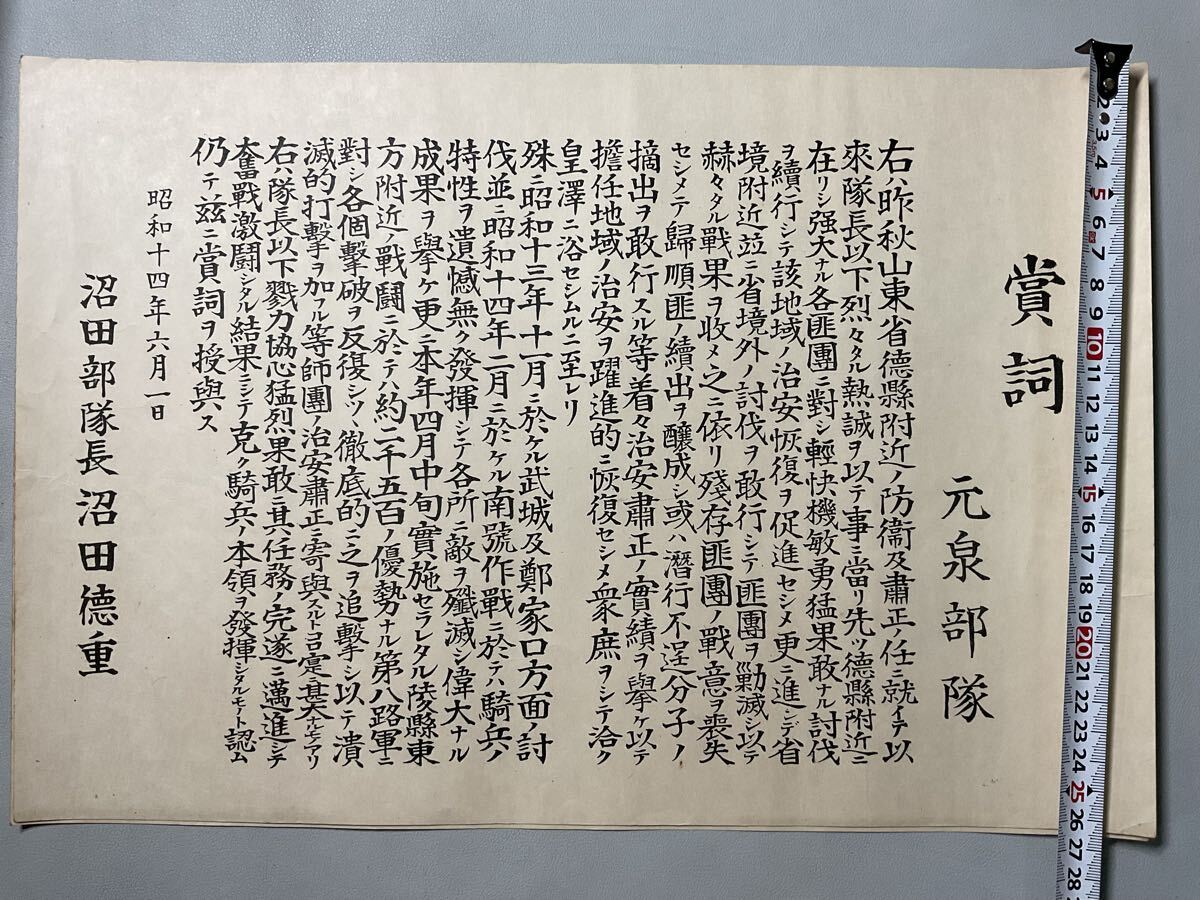 賞詞
元泉部隊
右ハ昨秋山東省德縣附近ノ防衞及肅正ノ任ニ就イテ以
來隊長以下烈々タル熱誠ヲ以テ事ニ當リ先ツ德縣附近ニ
在リシ强大ナル各匪團ニ對シ輕快機敏勇猛果敢ナル討伐
ヲ續行シテ該地域ノ治安恢復ヲ促進セシメ更ニ進ンデ省
境附近竝ニ省境外ノ討伐ヲ敢行シテ匪團ヲ勦滅シ以テ
赫々タル戰果ヲ收メ之ニ依リ殘存匪團ノ戰意ヲ喪失
セシメテ歸順匪ノ續出ヲ釀成シ或ハ潛行不逞分子ノ
摘出ヲ敢行スル等着々治安肅正ノ實績ヲ擧ケ以テ
擔任地域ノ治安ヲ躍進的ニ恢復セシメ衆庶ヲシテ洽ク
皇澤ニ浴セシムルニ至レリ
殊ニ昭和十三年十一月ニ於ケル武城及鄭家口方面ノ討
伐並ニ昭和十四年二月ニ於ケル南號作戰ニ於テハ騎兵ノ
特性ヲ遺憾無ク發揮シテ各所ニ敵ヲ殲滅シ偉大ナル
成果ヲ擧ケ更ニ本年四月中旬實施セラレタル陵縣東
方附近ノ戰鬪ニ於テハ約二千五百ノ優勢ナル第八路軍ニ
對シ各個擊破ヲ反復シツヽ徹底的ニ之ヲ追擊シ以テ潰
滅的打擊ヲ加フル等師團ノ治安肅正ニ寄與スルトコロ寔ニ甚大ナルモノアリ
右ハ隊長以下戮力協心猛烈果敢ニ其ノ任務ノ完遂ニ邁進シテ
奮戰激鬪シタル結果ニシテ克ク騎兵ノ本領ヲ發揮シタルモノト認ム
仍テ茲ニ賞詞ヲ授與ス
昭和十四年六月一日
沼田部隊長沼田德重
2
3
4
5
6
7
8
9
10
11
12
13
14
15
16
17
18
19
20
21
22
23
24
25
26
27
28